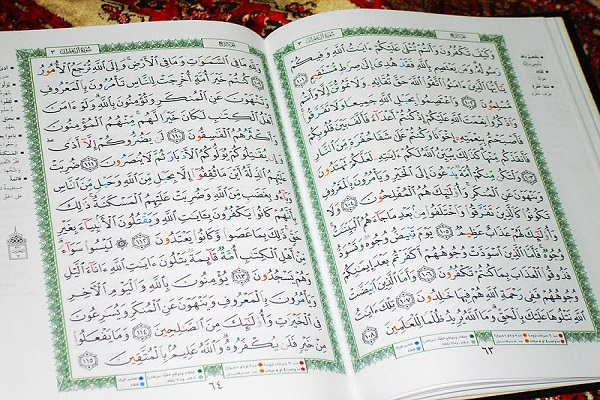 سورة آل عمران ٣
وَكَيْفَ تَكْفُرُونَ وَأَنتُمْ تُتْلَىٰ عَلَيْكُمْ ءَايَٰتُ ٱللَّهِ وَفِيكُمْ
رَسُولُهُۥ وَمَن يَعْتَصِم بِٱللَّهِ فَقَدْ هُدِىَ إِلَىٰ صِرَٰطٍ مُّسْتَقِيمٍ ١٠١
يَٰٓأَيُّهَا ٱلَّذِينَ ءَامَنُوا۟ ٱتَّقُوا۟ ٱللَّهَ حَقَّ تُقَاتِهِۦ وَلَا تَمُوتُنَّ إِلَّا وَأَنتُم
مُّسْلِمُونَ ١٠٢ وَٱعْتَصِمُوا۟ بِحَبْلِ ٱللَّهِ جَمِيعًا وَلَا تَفَرَّقُوا۟
وَٱذْكُرُوا۟ نِعْمَتَ ٱللَّهِ عَلَيْكُمْ إِذْ كُنتُمْ أَعْدَآءً فَأَلَّفَ بَيْنَ قُلُوبِكُمْ
فَأَصْبَحْتُم بِنِعْمَتِهِۦٓ إِخْوَٰنًا وَكُنتُمْ عَلَىٰ شَفَا حُفْرَةٍ مِّنَ ٱلنَّارِ
فَأَنقَذَكُم مِّنْهَا كَذَٰلِكَ يُبَيِّنُ ٱللَّهُ لَكُمْ ءَايَٰتِهِۦ لَعَلَّكُمْ تَهْتَدُونَ ١٠٣
وَلْتَكُن مِّنكُمْ أُمَّةٌ يَدْعُونَ إِلَى ٱلْخَيْرِ وَيَأْمُرُونَ بِٱلْمَعْرُوفِ
وَيَنْهَوْنَ عَنِ ٱلْمُنكَرِ وَأُو۟لَٰٓئِكَ هُمُ ٱلْمُفْلِحُونَ ١٠٤ وَلَا
تَكُونُوا۟ كَٱلَّذِينَ تَفَرَّقُوا۟ وَٱخْتَلَفُوا۟ مِنۢ بَعْدِ مَا جَآءَهُمُ ٱلْبَيِّنَٰتُ
وَأُو۟لَٰٓئِكَ لَهُمْ عَذَابٌ عَظِيمٌ ١٠٥ يَوْمَ تَبْيَضُّ وُجُوهٌ وَتَسْوَدُّ
وُجُوهٌ فَأَمَّا ٱلَّذِينَ ٱسْوَدَّتْ وُجُوهُهُمْ أَكَفَرْتُم بَعْدَ إِيمَٰنِكُمْ
فَذُوقُوا۟ ٱلْعَذَابَ بِمَا كُنتُمْ تَكْفُرُونَ ١٠٦ وَأَمَّا ٱلَّذِينَ ٱبْيَضَّتْ
وُجُوهُهُمْ فَفِى رَحْمَةِ ٱللَّهِ هُمْ فِيهَا خَٰلِدُونَ ١٠٧ تِلْكَ ءَايَٰتُ
ٱللَّهِ نَتْلُوهَا عَلَيْكَ بِٱلْحَقِّ وَمَا ٱللَّهُ يُرِيدُ ظُلْمًا لِّلْعَٰلَمِينَ ١٠٨
٦٣
سورة آل عمران ٣
وَلِلَّهِ مَا فِى ٱلسَّمَٰوَٰتِ وَمَا فِى ٱلْأَرْضِ وَإِلَى ٱللَّهِ تُرْجَعُ ٱلْأُمُورُ
١٠٩ كُنتُمْ خَيْرَ أُمَّةٍ أُخْرِجَتْ لِلنَّاسِ تَأْمُرُونَ بِٱلْمَعْرُوفِ
وَتَنْهَوْنَ عَنِ ٱلْمُنكَرِ وَتُؤْمِنُونَ بِٱللَّهِ وَلَوْ ءَامَنَ
أَهْلُ ٱلْكِتَٰبِ لَكَانَ خَيْرًا لَّهُم مِّنْهُمُ ٱلْمُؤْمِنُونَ
وَأَكْثَرُهُمُ ٱلْفَٰسِقُونَ ١١٠ لَن يَضُرُّوكُمْ إِلَّآ أَذًى
وَإِن يُقَٰتِلُوكُمْ يُوَلُّوكُمُ ٱلْأَدْبَارَ ثُمَّ لَا يُنصَرُونَ ١١١ ضُرِبَتْ
عَلَيْهِمُ ٱلذِّلَّةُ أَيْنَ مَا ثُقِفُوٓا۟ إِلَّا بِحَبْلٍ مِّنَ ٱللَّهِ وَحَبْلٍ مِّنَ ٱلنَّاسِ
وَبَآءُو بِغَضَبٍ مِّنَ ٱللَّهِ وَضُرِبَتْ عَلَيْهِمُ ٱلْمَسْكَنَةُ ذَٰلِكَ
بِأَنَّهُمْ كَانُوا۟ يَكْفُرُونَ بِـَٔايَٰتِ ٱللَّهِ وَيَقْتُلُونَ ٱلْأَنۢبِيَآءَ بِغَيْرِ
حَقٍّ ذَٰلِكَ بِمَا عَصَوا۟ وَّكَانُوا۟ يَعْتَدُونَ ١١٢ لَيْسُوا۟ سَوَآءً
مِّنْ أَهْلِ ٱلْكِتَٰبِ أُمَّةٌ قَآئِمَةٌ يَتْلُونَ ءَايَٰتِ ٱللَّهِ ءَانَآءَ ٱلَّيْلِ
وَهُمْ يَسْجُدُونَ ١١٣ يُؤْمِنُونَ بِٱللَّهِ وَٱلْيَوْمِ ٱلْءَاخِرِ
وَيَأْمُرُونَ بِٱلْمَعْرُوفِ وَيَنْهَوْنَ عَنِ ٱلْمُنكَرِ وَيُسَٰرِعُونَ
فِى ٱلْخَيْرَٰتِ وَأُو۟لَٰٓئِكَ مِنَ ٱلصَّٰلِحِينَ ١١٤ وَمَا يَفْعَلُوا۟
مِنْ خَيْرٍ فَلَن يُكْفَرُوهُ وَٱللَّهُ عَلِيمٌۢ بِٱلْمُتَّقِينَ ١١٥
٦٤